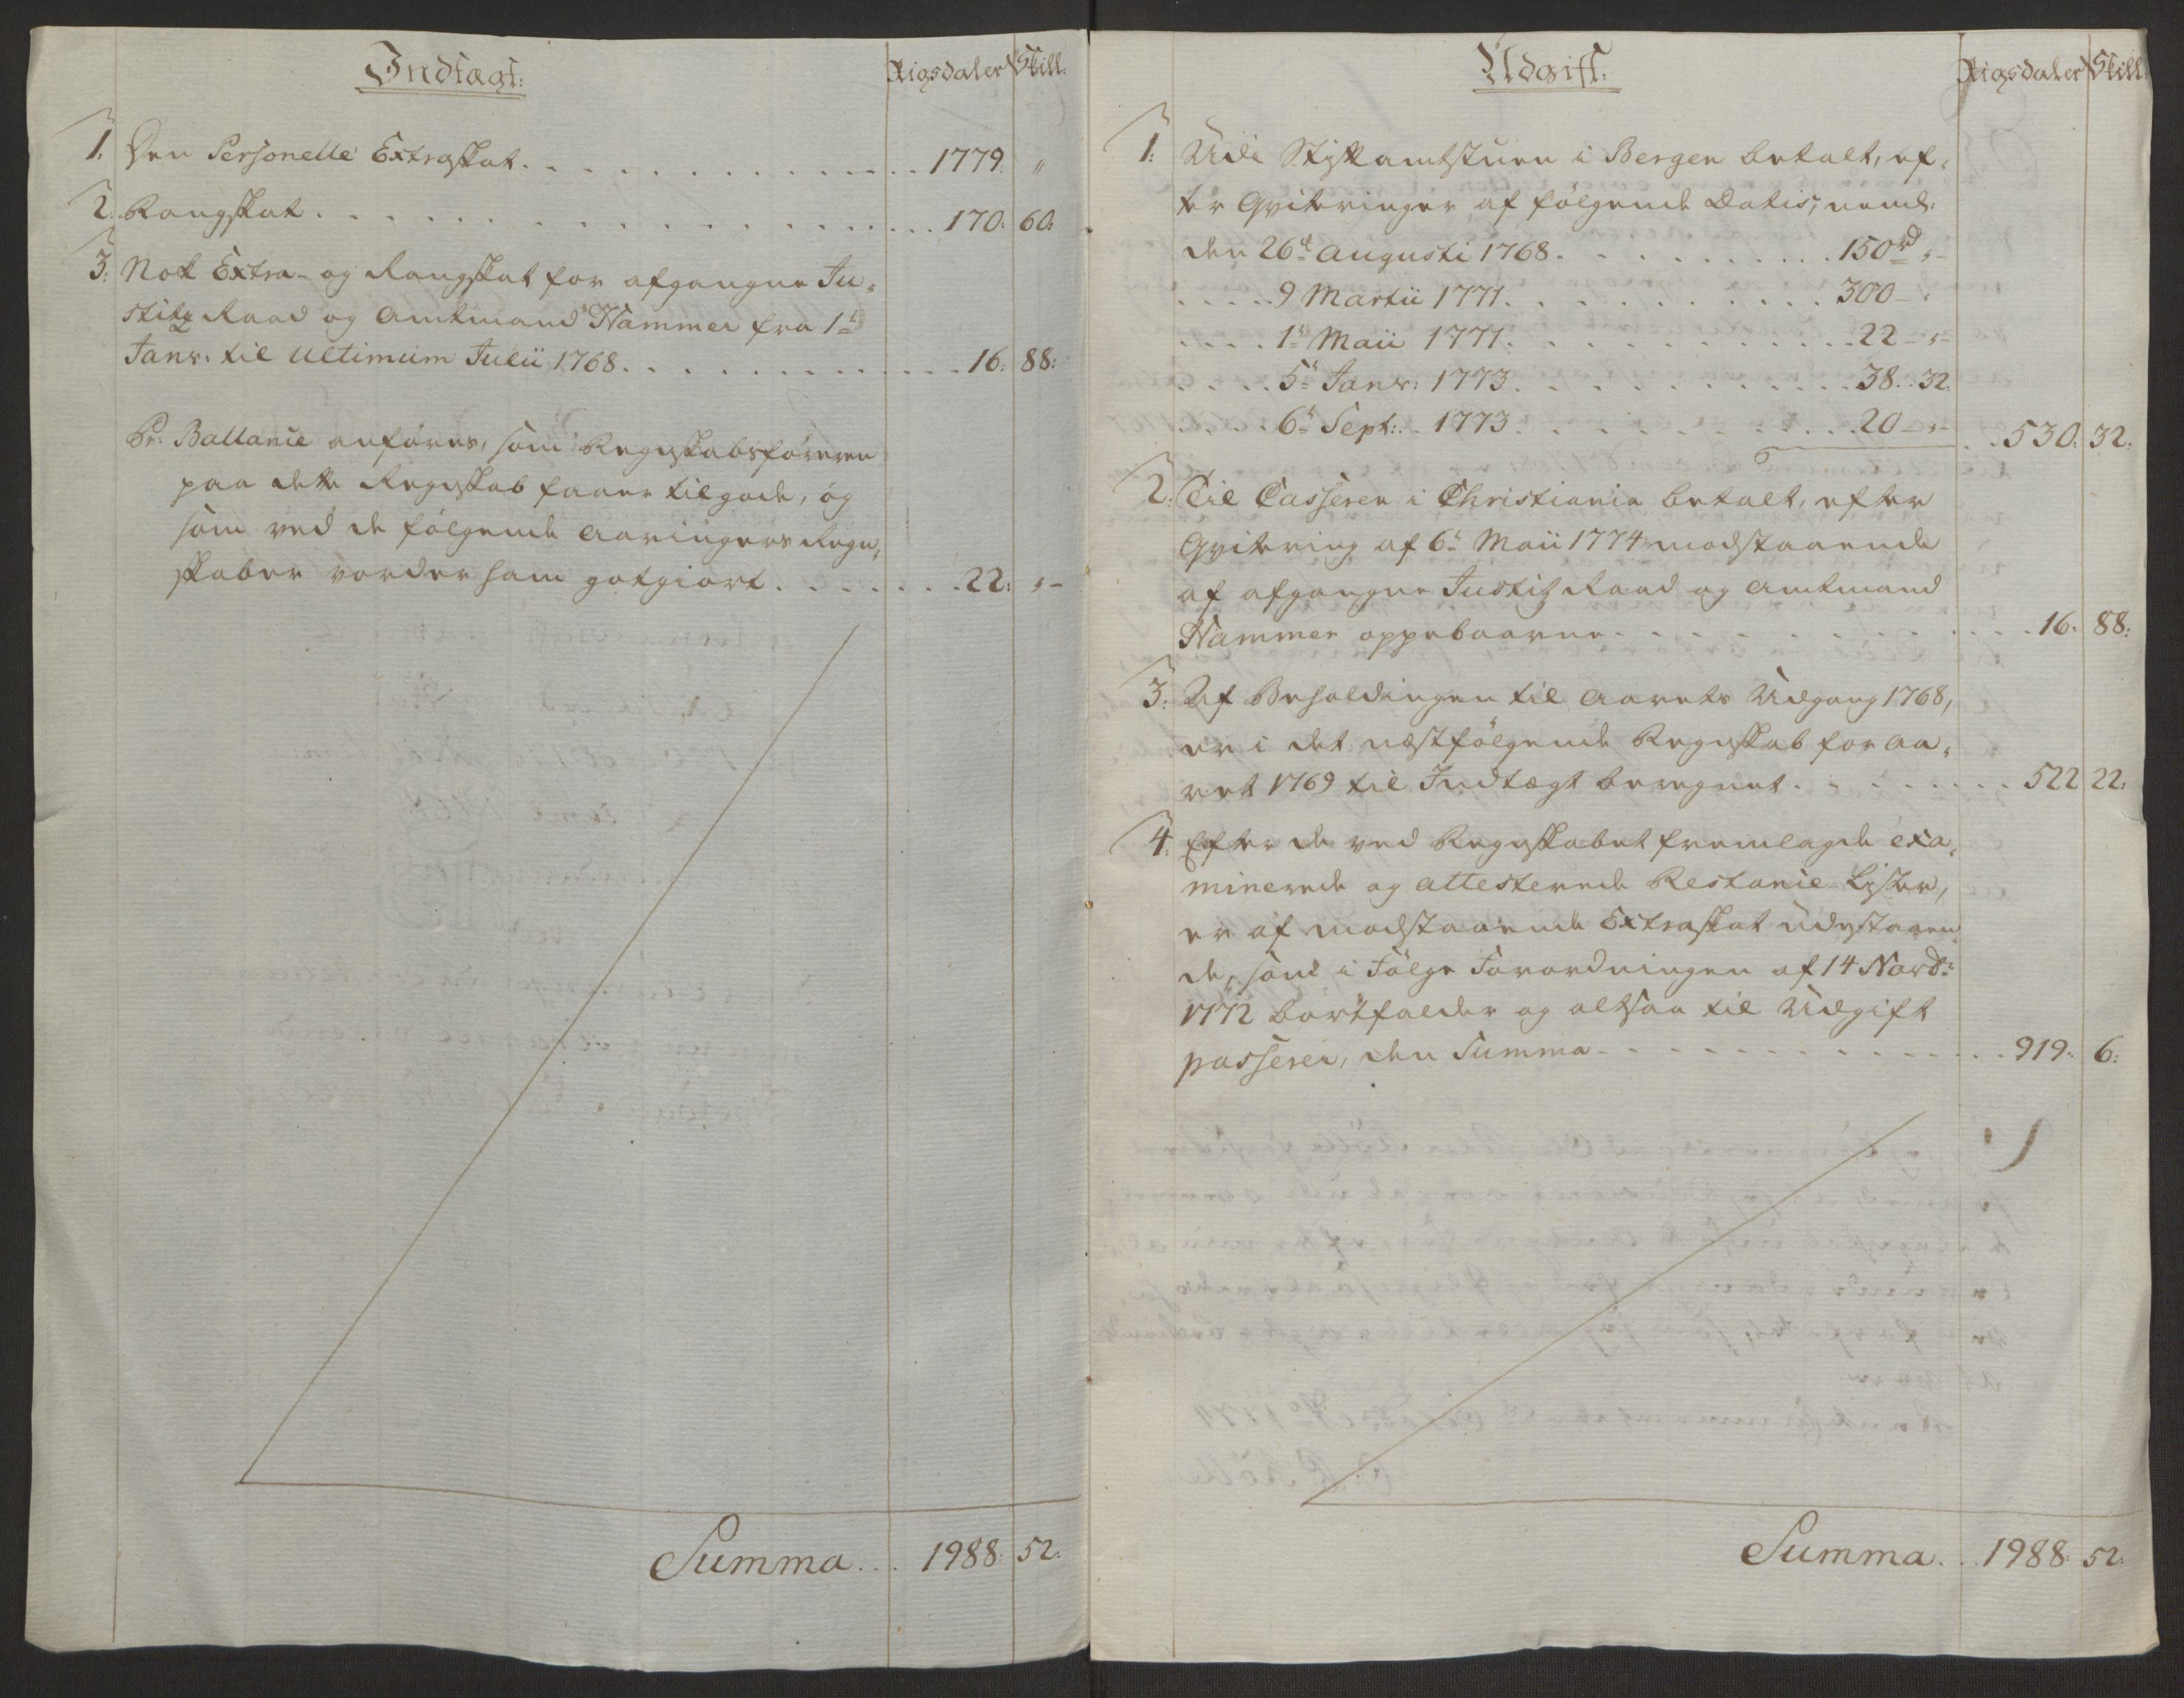 Indtægt:
Rigsdaler Skill:
1. Den Personelle Extraskat. . . . . . . . . . . . . 1779. "
2. Rangskat. . . . . . . . . . . . . . . . . 170. 60.
3. Nok Extra- og Rangskat for afgangne Ju-
stitz Raad og Amtmand Hammer fra 1te
Janv: til Ultimum Julii 1768. . . . . . . . . . . . . 16. 88:
Pr: Ballanie anføres, som Regnskabsføreren
paa dette Regnskab faaer tilgode, og
som ved de følgende Aaringers Regn-
skaber vorder ham gotgiort. . . . . . . 22: "-
Summa. . . 1988: 52:
Udgift:
Rigsdaler Skill:
1: Udi Stiftamtstuen i Bergen betalt, ef-
ter Qviteringer af følgende Datis, neml:
den 26de Augusti 1768. . . . . . . . . . 150rd "-
. . . . . 9 Martii 1771. . . . . . . . . . 300 - "
. . . . 1te Maii 1771. . . . . . . . . . . 22 - "-
. . . . 5te Janv: 1773. . . . . . . . . . . 38. . 32.
. . . . 6te Sept: 1773. . . . . . . . . . . 20 - "-
. . 530. 32:
2: Til Casseren i Christiania betalt, efter
Qvitering af 6te Maii 1774 modstaaende
af afgangne Justitz Raad og Amtmand
Hammer oppebaarne . . . . . . . . . . . 16. 88:
3: Af Beholdingen til Aarets Udgang 1768,
er i det næstfølgende Regnskab for Aa-
ret 1769 til Indtægt beregnet. . . . . . . . 522 22:
4. Efter de ved Regnskabet fremlagde exa-
minerede og attesterede Restanie-Lister,
er af modstaaende Extraskat udestaaen-
de, som i Følge Forordningen af 14 Novbr:
1772 bortfalder og altsaa til Udgift
passerer, den Summa . . . . . . . . . . . . . . 919. 6:
Summa. . . 1988: 52: